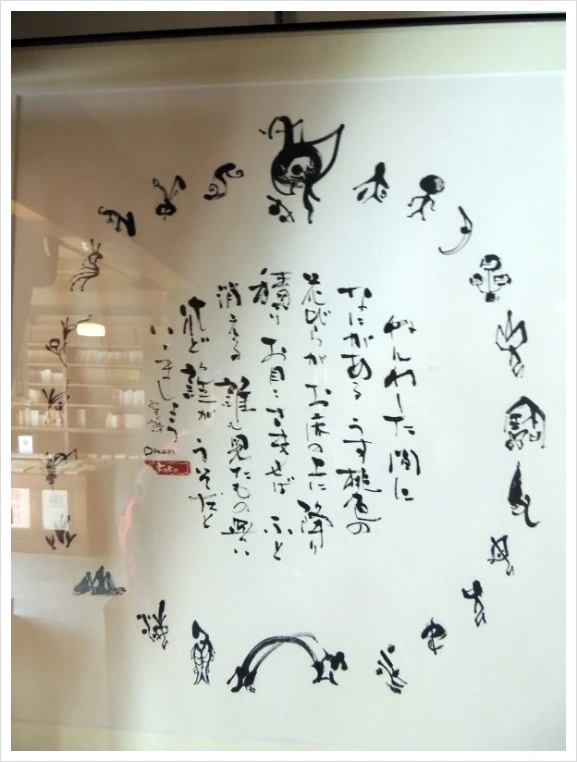 ねんねした間に
なにがある うす桃色の
花びらが お床の上に 降り
積り お目々さませば ふと
消える 誰も見たもの無い
けれど 誰が うそだと
いいましょう
Dream